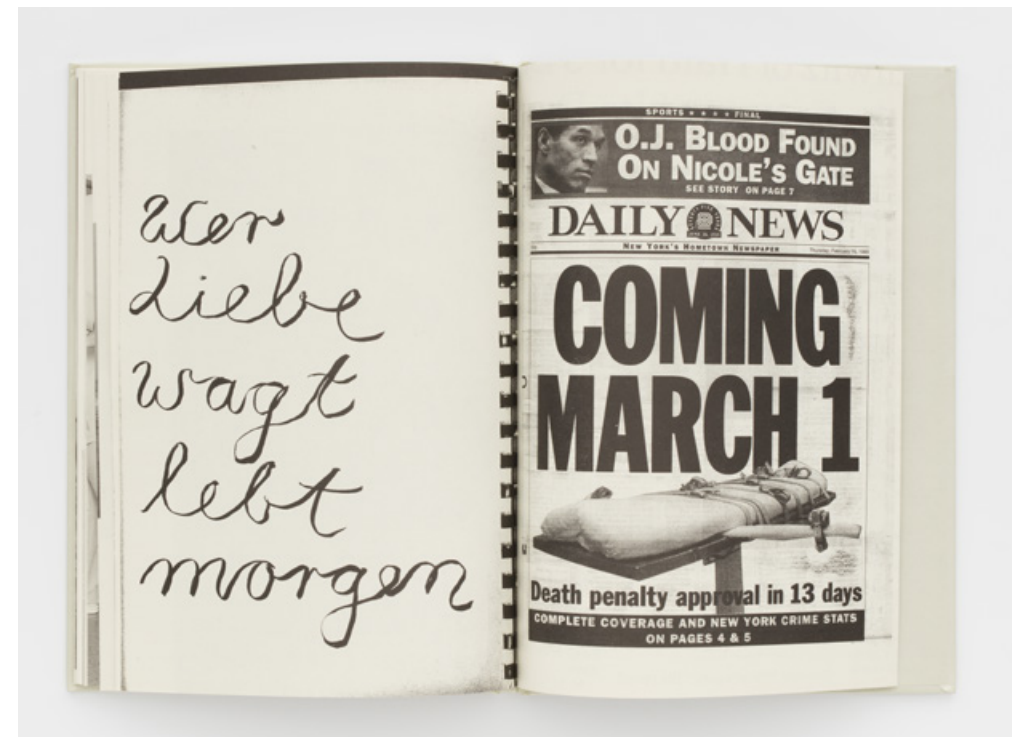 wer
Liebe
wagt
lebt
morgen
SPORTS ★ ★ ★ ★ FINAL
O.J. BLOOD FOUND
ON NICOLE'S GATE
SEE STORY ON PAGE 7
DAILY NEWS
NEW YORK'S HOMETOWN NEWSPAPER
COMING
MARCH 1
Death penalty approval in 13 days
COMPLETE COVERAGE AND NEW YORK CRIME STATS
ON PAGES 4 & 5